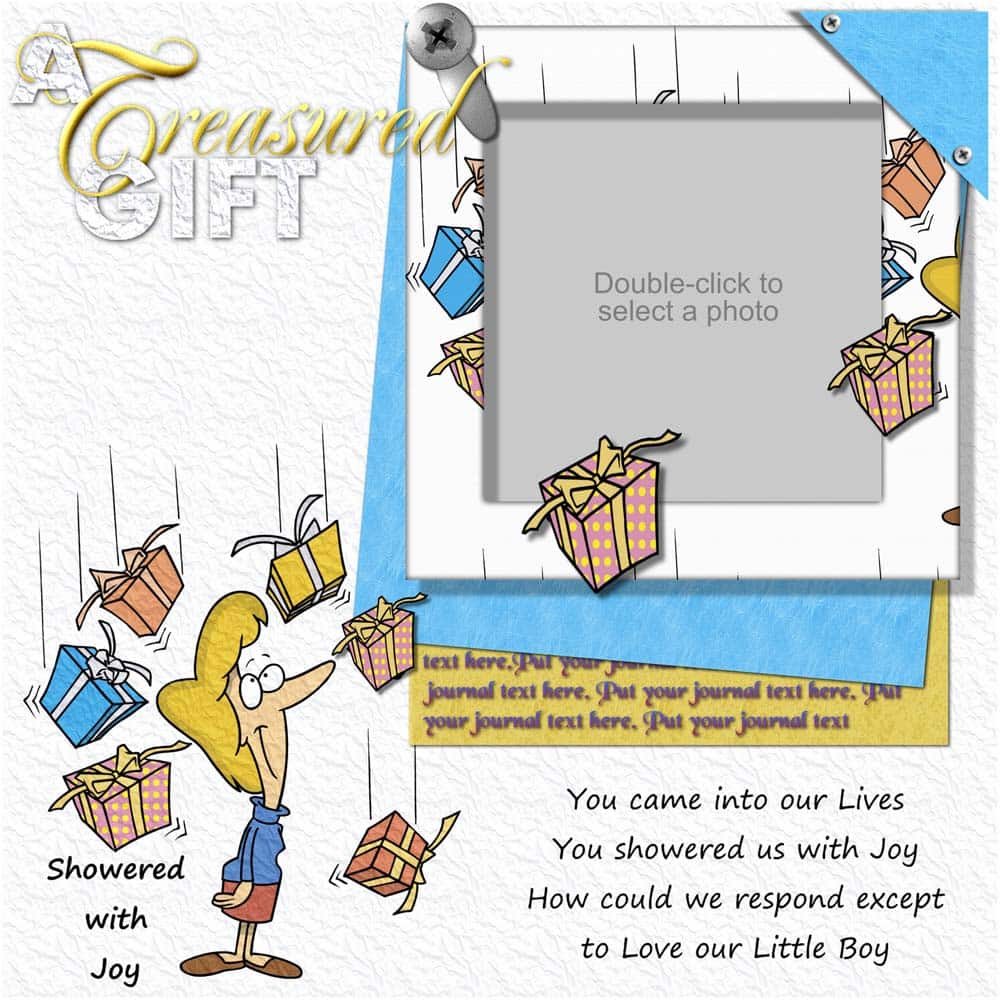 A
Treasured
GIFT
Double-click to
select a photo
text here. Put your
journal text here. Put your journal text here. Put
your journal text here. Put your journal text
You came into our Lives
You showered us with Joy
How could we respond except
to Love our Little Boy
Showered
with
Joy